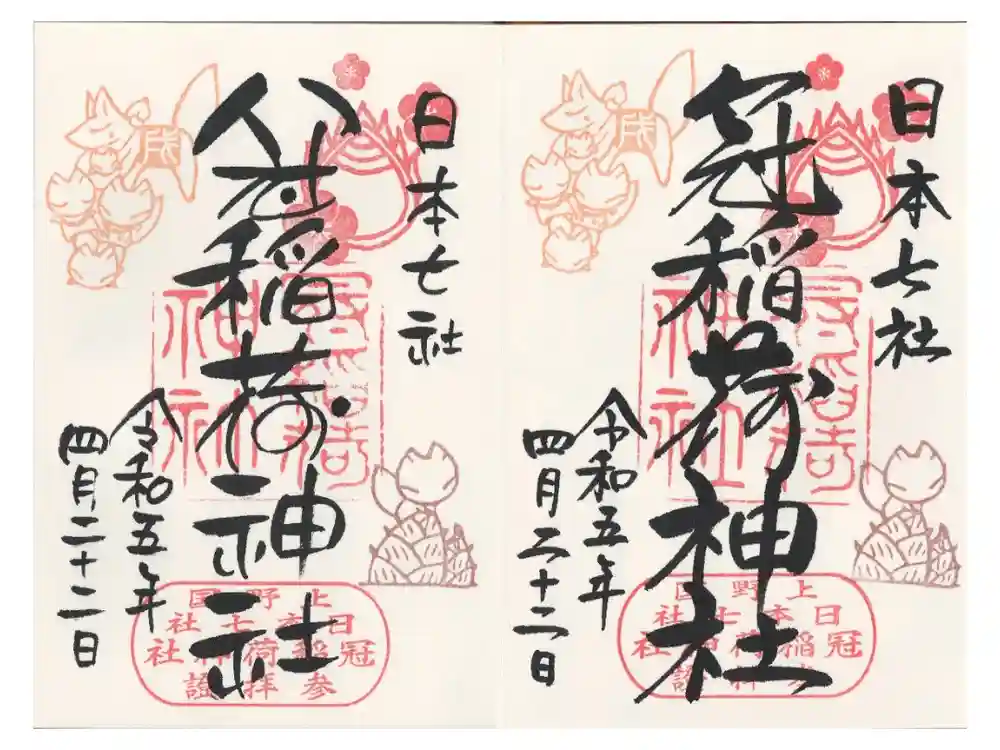 日本七社
冠稲荷神社
令和五年
四月二十二日
戌
冠稲荷
神社
上野国
日本七社
冠稲荷神社
参拝證
日本七社
八社稲荷神社
令和五年
四月二十二日
戌
冠稲荷
神社
上野国
日本七社
冠稲荷神社
参拝證